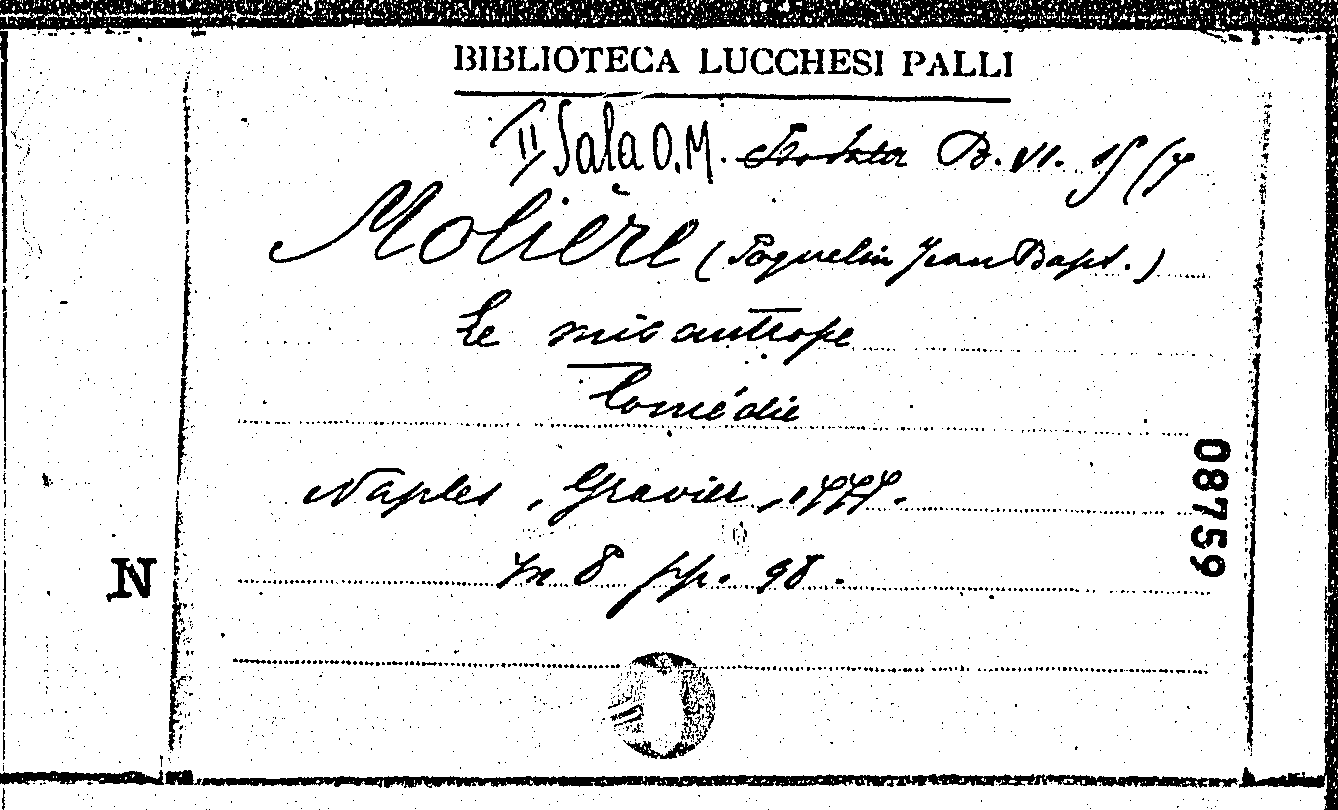 BIBLIOTECA LUCCHESI PALLI
II Sala O.M. B. VI. 15 (7
Molière (Poquelin Jean Bapt.)
Le misantrope
Comédie
Naples, Gravier, 1777.
In 8 pp. 98.
N
08759